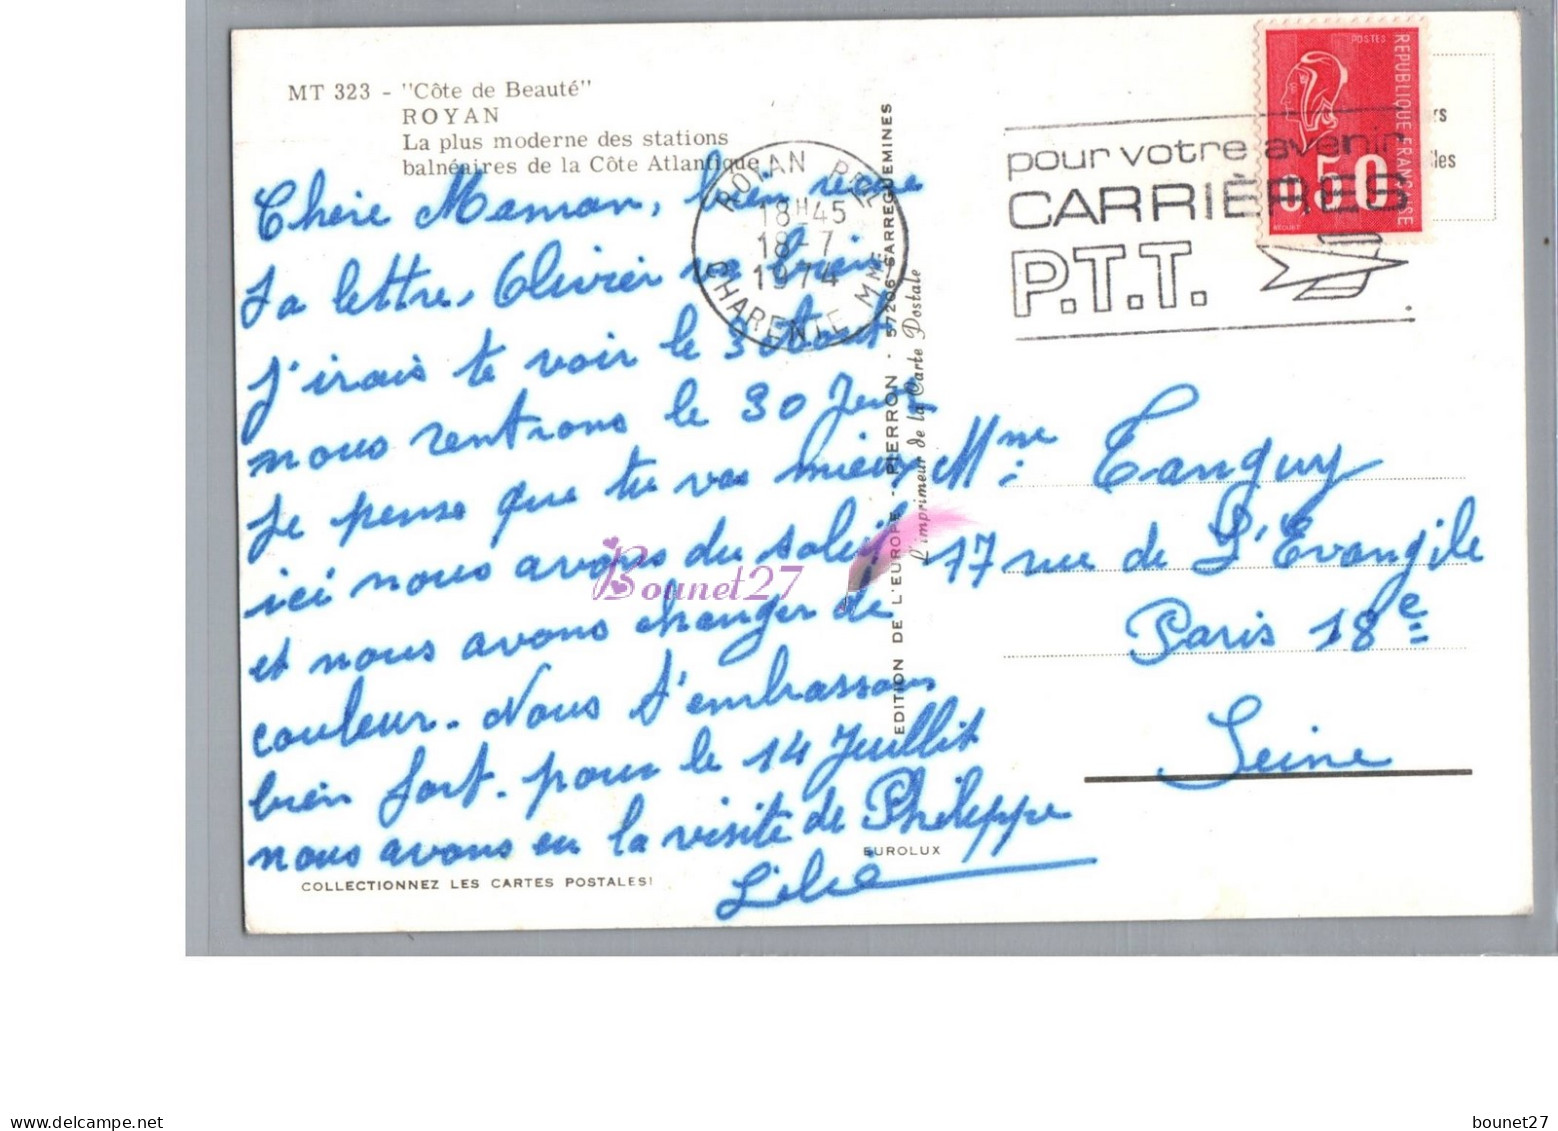 MT 323 - "Côte de Beauté"
ROYAN
La plus moderne des stations
balnéaires de la Côte Atlantique
ROYAN PPAL
18H45
18-7
1974
CHARENTE MME
pour votre avenir
CARRIÈRES
P.T.T.
POSTES
REPUBLIQUE FRANÇAISE
0,50
BEQUET
rs
les
Chère Maman, bien reçue
ta lettre, Olivier va bien
j'irais te voir le 3 Août
nous rentrons le 30 Juil
je pense que tu vas mieux
ici nous avons du soleil
et nous avons changer de
couleur. Nous t'embrassons
bien fort. pour le 14 Juillit
nous avons eu la visite de Philippe
EDITION DE L'EUROPE - PIERRON - 57206 SARREGUEMINES
L'imprimeur de la Carte Postale
Mme Tanguy
17 rue de L'Evangile
Paris 18e
Seine
Bounet27
EUROLUX
COLLECTIONNEZ LES CARTES POSTALES!
www.delcampe.net
bounet27